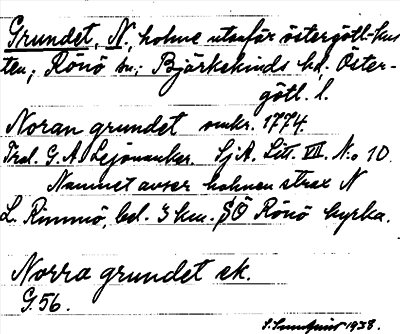 Grundet, N., holme utanför östergötl.-kus
ten; Rönö sn; Björkekinds hd. Öster-
götl. l.
Noran grundet omkr. 1774.
Trol. G. A. Lejonanker. SjA. Litt. VII. No 10.
Namnet avser holmen strax N
L. Rimmö, bel. 3 km. SÖ Rönö kyrka.
Norra grundet ek.
G.56.
S. Sundqvist 1938.